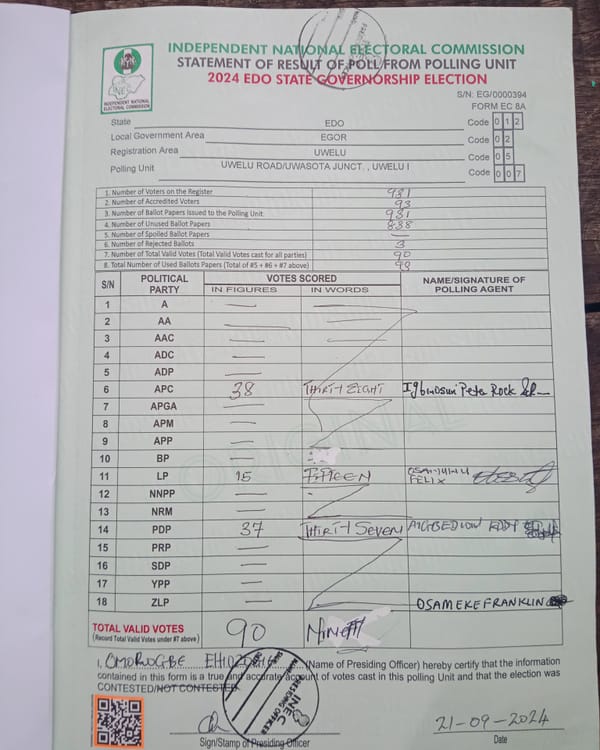 INDEPENDENT NATIONAL ELECTORAL COMMISSION
STATEMENT OF RESULT OF POLL FROM POLLING UNIT
2024 EDO STATE GOVERNORSHIP ELECTION
INEC
INDEPENDENT NATIONAL ELECTORAL COMMISSION
S/N: EG/0000394
FORM EC 8A
State EDO Code 0 1 2
Local Government Area EGOR Code 0 2
Registration Area UWELU Code 0 5
Polling Unit UWELU ROAD/UWASOTA JUNCT. , UWELU I Code 0 0 7
1. Number of Voters on the Register 931
2. Number of Accredited Voters 93
3. Number of Ballot Papers Issued to the Polling Unit 931
4. Number of Unused Ballot Papers 838
5. Number of Spoiled Ballot Papers —
6. Number of Rejected Ballots 3
7. Number of Total Valid Votes (Total Valid Votes cast for all parties) 90
8. Total Number of Used Ballots Papers (Total of #5 + #6 + #7 above)
S/N POLITICAL PARTY VOTES SCORED NAME/SIGNATURE OF POLLING AGENT
IN FIGURES IN WORDS
1 A — —
2 AA — —
3 AAC — —
4 ADC —
5 ADP —
6 APC 38 THIRTY EIGHT Peter Rock
7 APGA —
8 APM —
9 APP —
10 BP —
11 LP 15 FIFTEEN FELIX
12 NNPP —
13 NRM —
14 PDP 37 THIRTY SEVEN
15 PRP —
16 SDP —
17 YPP —
18 ZLP — OSAMEKE FRANKLIN
TOTAL VALID VOTES 90 NINETY
(Record Total Valid Votes under #7 above)
I, OMOROGBE (Name of Presiding Officer) hereby certify that the information
contained in this form is a true and accurate account of votes cast in this polling Unit and that the election was
CONTESTED/NOT CONTESTED.
21-09-2024
Sign/Stamp of Presiding Officer Date